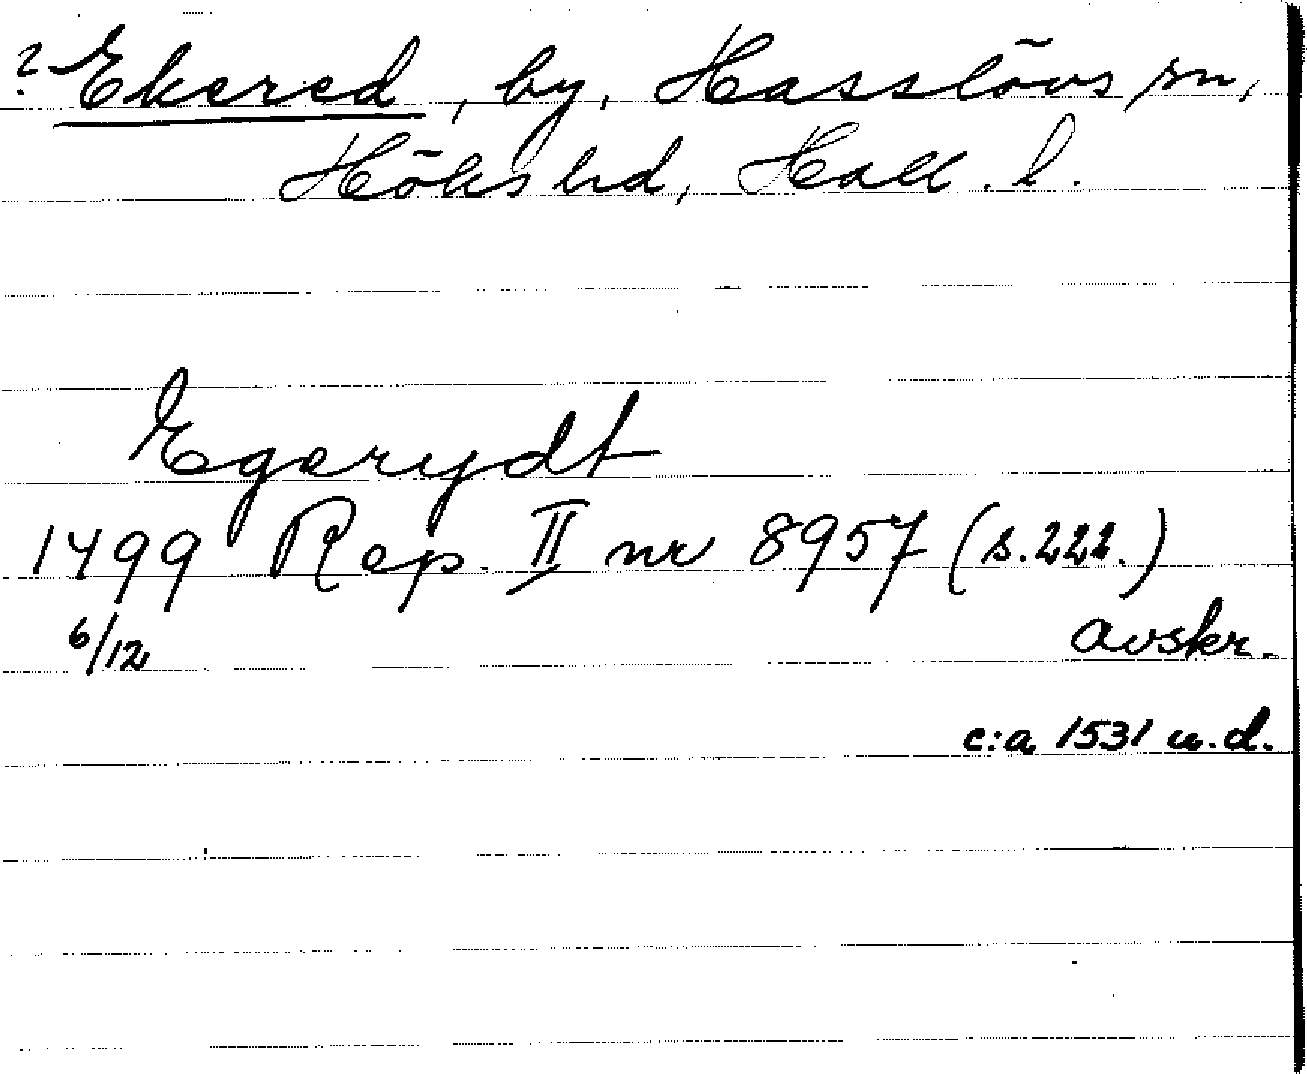 ? Ekered, by, Hasslövs sn,
Höks hd, Hall. l.
Egerydt
1499 Rep. II nr 8957 (s. 222.)
6/12 avskr.
c:a 1531 u.d.